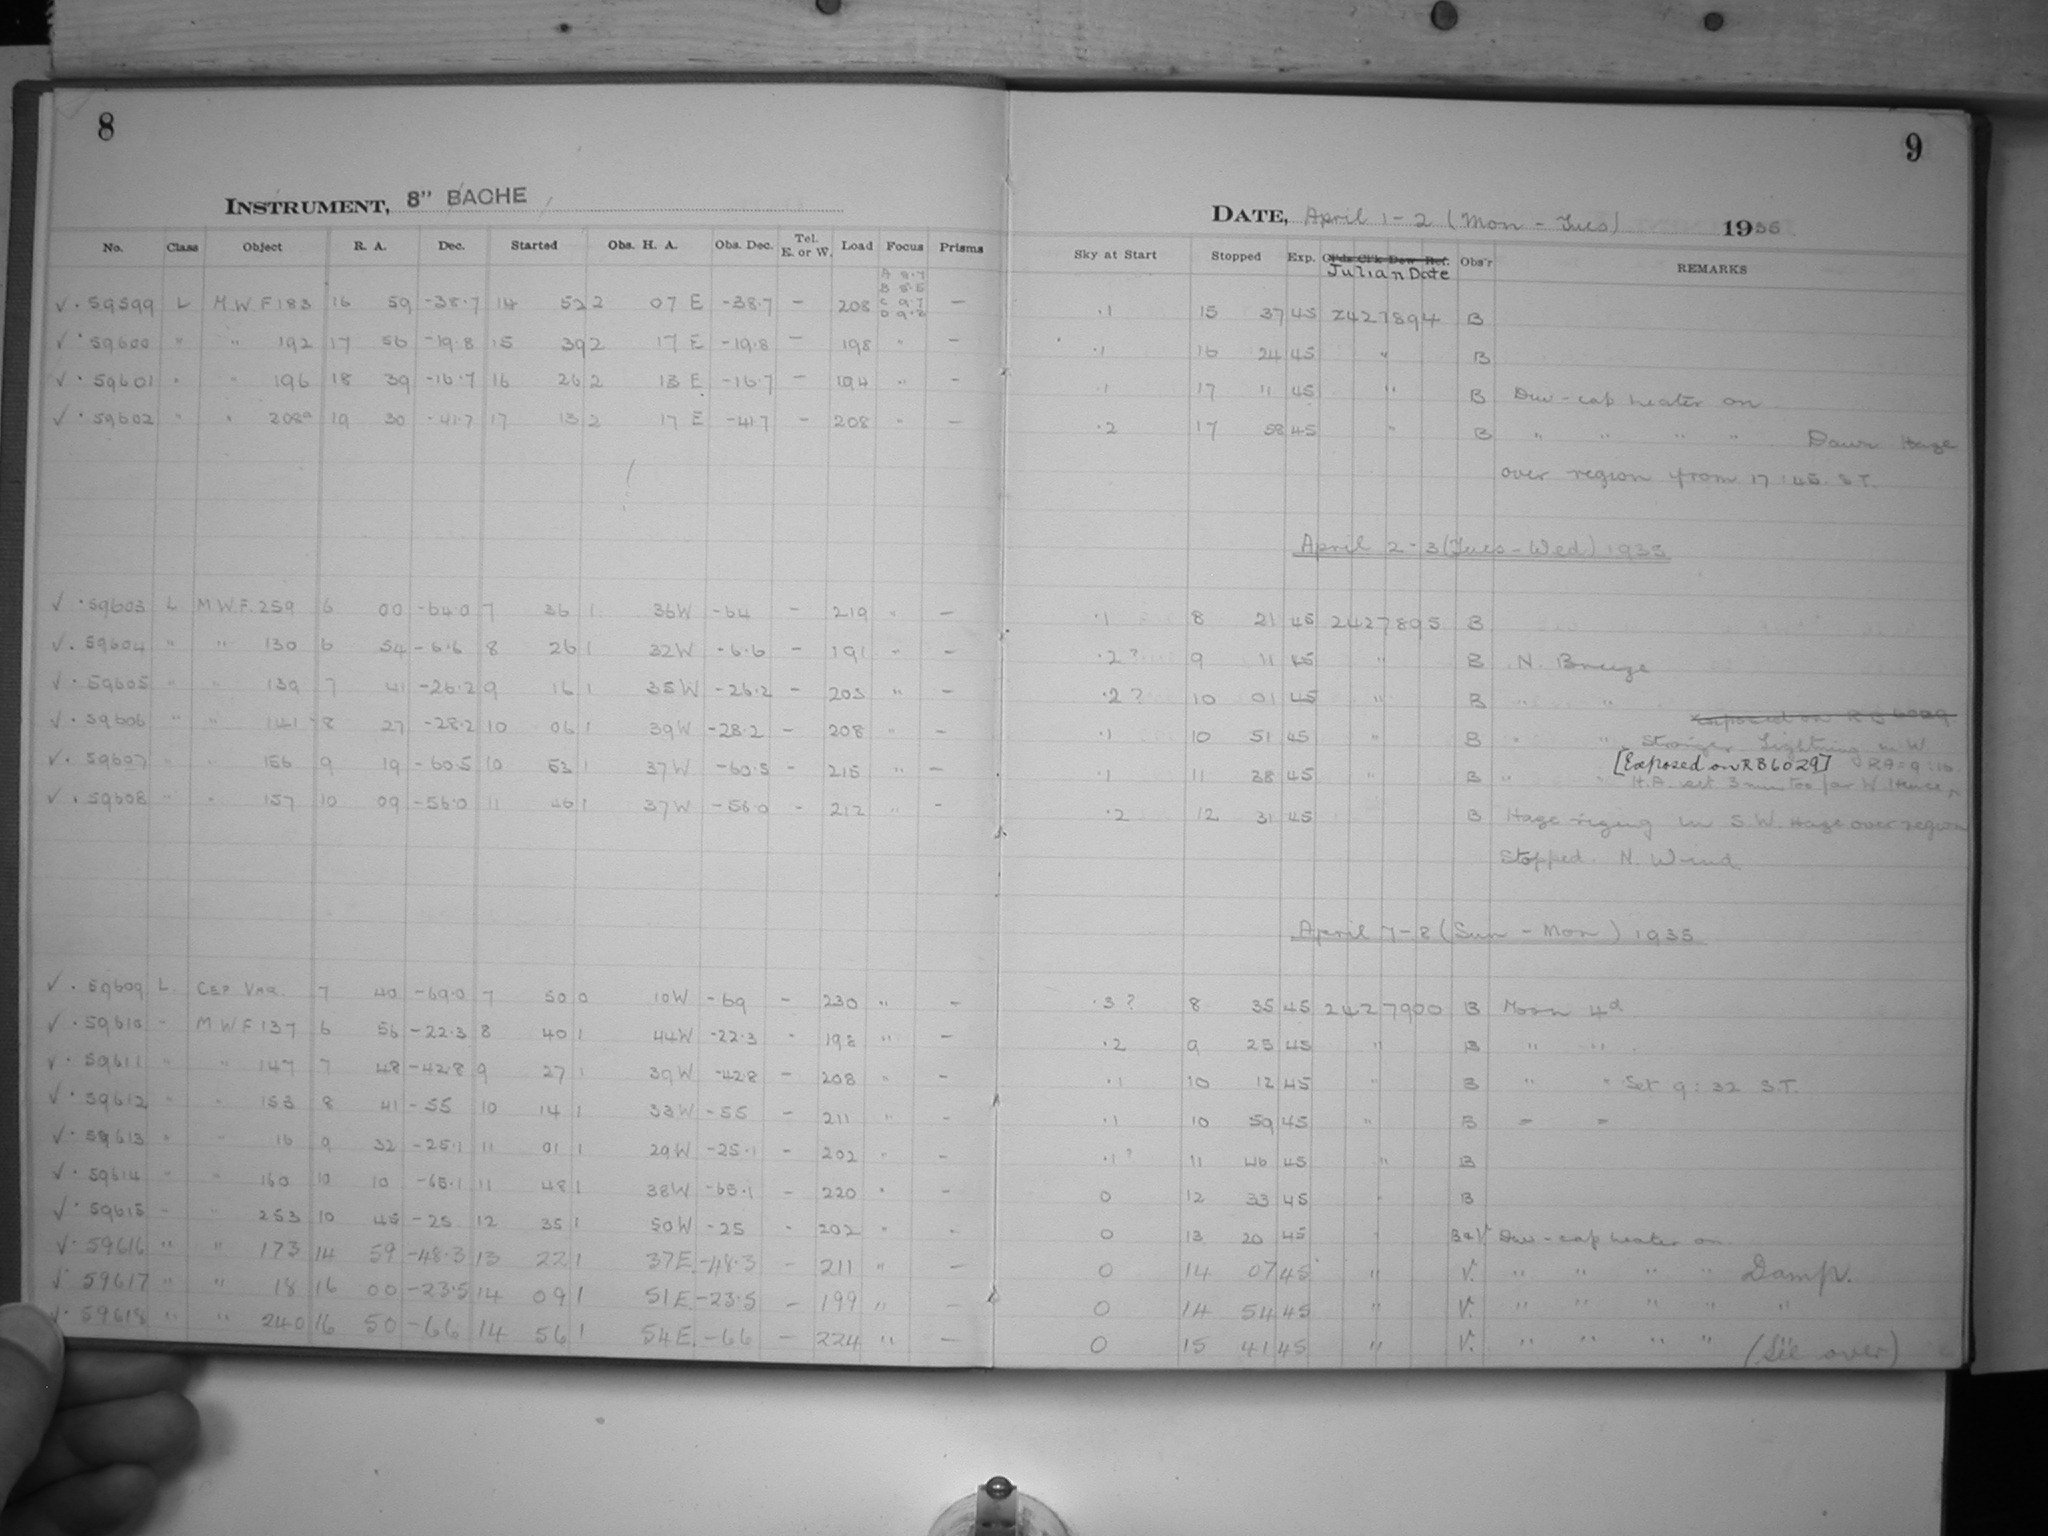 8
INSTRUMENT, 8" BACHE
No. Class Object R. A. Dec. Started Obs. H. A. Obs. Dec. Tel. E. or W. Load Focus Prisms
A 8.7
B 8.5
C 9.7
√ · 59599 L M.W.F 183 16 59 -38.7 14 52 2 07 E -38.7 - 208 -
√ · 59600 " " 192 17 56 -19.8 15 39 2 17 E -19.8 - 198 " -
√ · 59601 " " 196 18 39 -16.7 16 26 2 13 E -16.7 - 194 " -
√ · 59602 " " 208a 19 30 -41.7 17 13 2 17 E -41.7 - 208 " -
√ · 59603 L M.W.F. 259 6 00 -64.0 7 36 1 36W -64 - 219 " -
√ · 59604 " " 130 6 54 -6.6 8 26 1 32W -6.6 - 191 " -
√ · 59605 " " 139 7 41 -26.2 9 16 1 35W -26.2 - 203 " -
√ · 59606 " " 141 8 27 -28.2 10 06 1 39W -28.2 - 208 " -
√ · 59607 " " 156 9 19 -60.5 10 53 1 37W -60.5 - 215 " -
√ · 59608 " " 157 10 09 -56.0 11 46 1 37W -56.0 - 212 " -
√ · 59609 L. CEP VAR. 7 40 -69.0 7 50 0 10W -69 - 230 " -
√ · 59610 " M W F 137 6 56 -22.3 8 40 1 44W -22.3 - 198 " -
√ · 59611 " " 147 7 48 -42.8 9 27 1 39W -42.8 - 208 " -
√ · 59612 " " 153 8 41 -55 10 14 1 33W -55 - 211 " -
√ · 59613 " " 16 9 32 -25.1 11 01 1 29W -25.1 - 202 " -
√ · 59614 " " 160 10 10 -65.1 11 48 1 38W -65.1 - 220 " -
√ · 59615 " " 253 10 45 -25 12 35 1 50W -25 - 202 " -
√ · 59616 " " 173 14 59 -48.3 13 22 1 37E. -48.3 - 211 " -
√ · 59617 " " 18 16 00 -23.5 14 09 1 51E -23.5 - 199 " -
√ · 59618 " " 240 16 50 -66 14 56 1 54E. -66 - 224 " -
9
DATE, April 1-2 (Mon - Tues) 1935
Sky at Start Stopped Exp. Cl'ds Cl'k Dew Ref. Obs'r REMARKS
Julian Date
.1 15 37 45 2427894 B
.1 16 24 45 " B
.1 17 11 45 " B Dew-cap heater on
.2 17 58 45 " B " " " " Dawn Haze
over region from 17:45. S.T.
April 2-3 (Tues-Wed) 1935
.1 8 21 45 2427895 B
.2? 9 11 45 " B N. Breeze
.2? 10 01 45 " B " "
Exposed on RB 6029
.1 10 51 45 " B " " Stronger Lightning in W.
[Exposed on RB6029] RA = 9:16
.1 11 38 45 " B " " H.A. set 3 min too far W. Hence
.2 12 31 45 B Haze rising in S.W. Haze over region
Stopped. N. Wind
April 7-8 (Sun - Mon) 1935
.3? 8 35 45 2427900 B Moon 4d
.2 9 25 45 " B " "
.1 10 12 45 " B " " Set 9:32 S.T.
.1 10 59 45 " B - -
.1? 11 46 45 " B
0 12 33 45 " B
0 13 20 45 " B+V Dew-cap heater on
0 14 07 45 " V. " " " " Damp.
0 14 54 45 " V. " " " " "
0 15 41 45 " V. " " " " "
(See over)